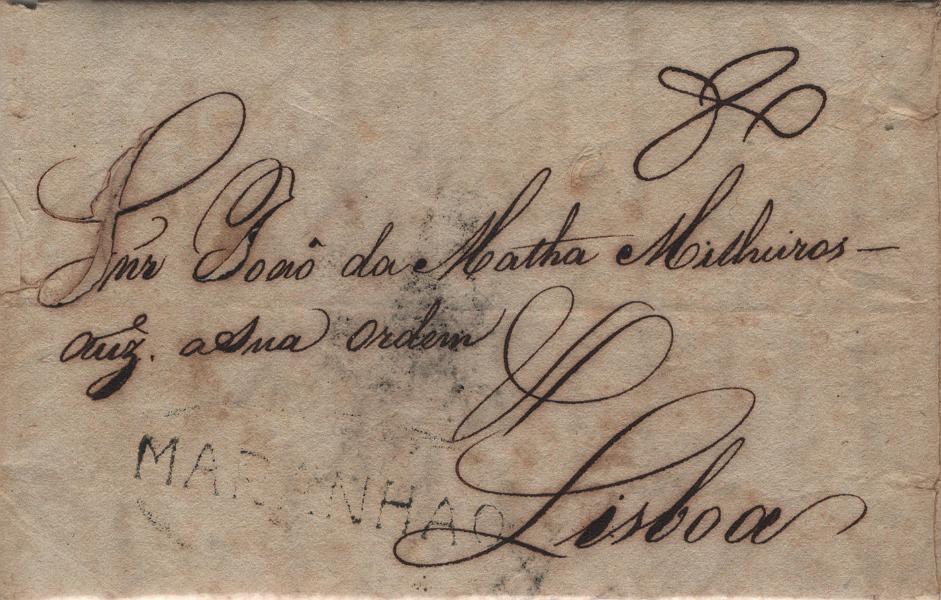 Snr Joaô da Matha Milheiros —
auz. a Sua ordem
MARANHAO
Lisboa